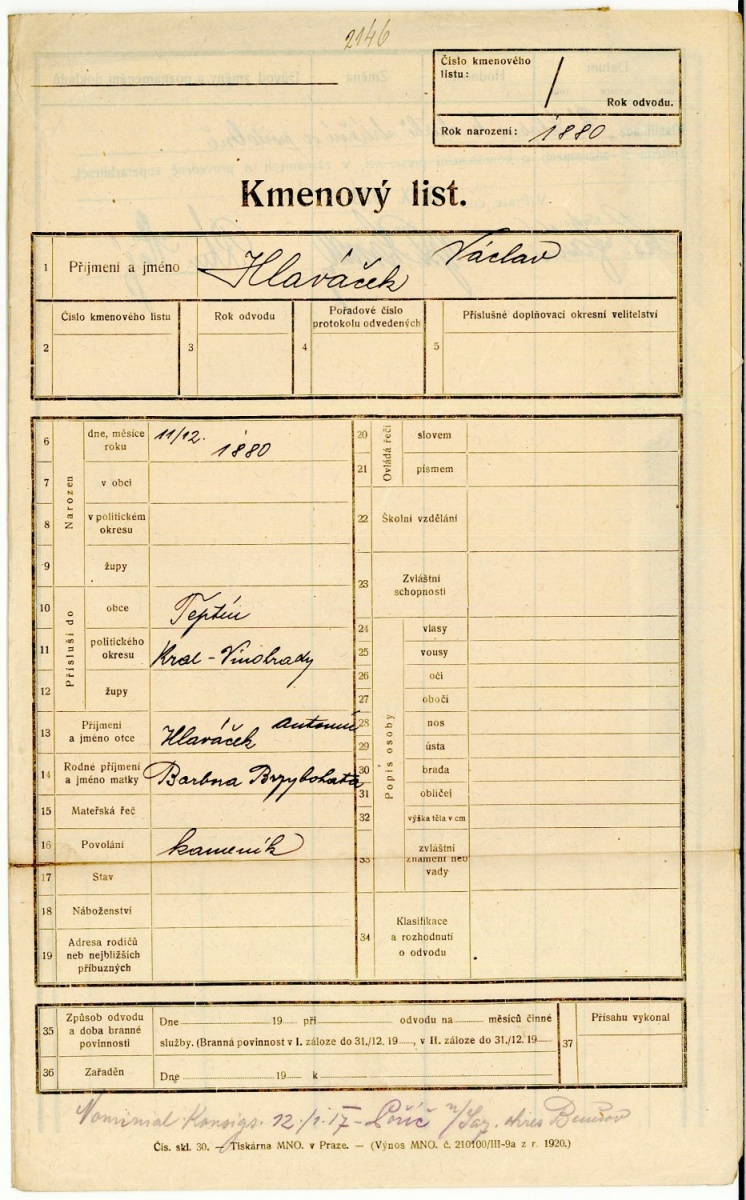 2146
Číslo kmenového
listu:
/
Rok odvodu.
Rok narození: 1880
Kmenový list.
1 Příjmení a jméno Hlaváček Václav
2 Číslo kmenového listu
3 Rok odvodu
4 Pořadové číslo
protokolu odvedených
5 Příslušné doplňovací okresní velitelství
Narozen
6 dne, měsíce
roku
11/12. 1880
7 v obci
8 v politickém
okresu
9 župy
Přísluší do
10 obce Teptín
11 politického
okresu
Král-Vinohrady
12 župy
13 Příjmení
a jméno otce
Hlaváček Antonín
14 Rodné příjmení
a jméno matky
Barbora
15 Mateřská řeč
16 Povolání kameník
17 Stav
18 Náboženství
19 Adresa rodičů
neb nejbližších
příbuzných
Ovládá řeči
20 slovem
21 písmem
22 Školní vzdělání
23 Zvláštní
schopnosti
Popis osoby
24 vlasy
25 vousy
26 oči
27 obočí
28 nos
29 ústa
30 brada
31 obličej
32 výška těla v cm
33 zvláštní
znamení neb
vady
34 Klasifikace
a rozhodnutí
o odvodu
35 Způsob odvodu
a doba branné
povinnosti
Dne 19 při odvodu na měsíců činné
služby. (Branná povinnost v I. záloze do 31./12. 19 , v II. záloze do 31./12. 19
36 Zařaděn
Dne 19 k
37 Přísahu vykonal
Nominial. Konsigs. 12/1.17 - Poříč n/Saz. okres Benešov
Čís. skl. 30. — Tiskárna MNO. v Praze. — (Výnos MNO. č. 210100/III-9a z r. 1920.)